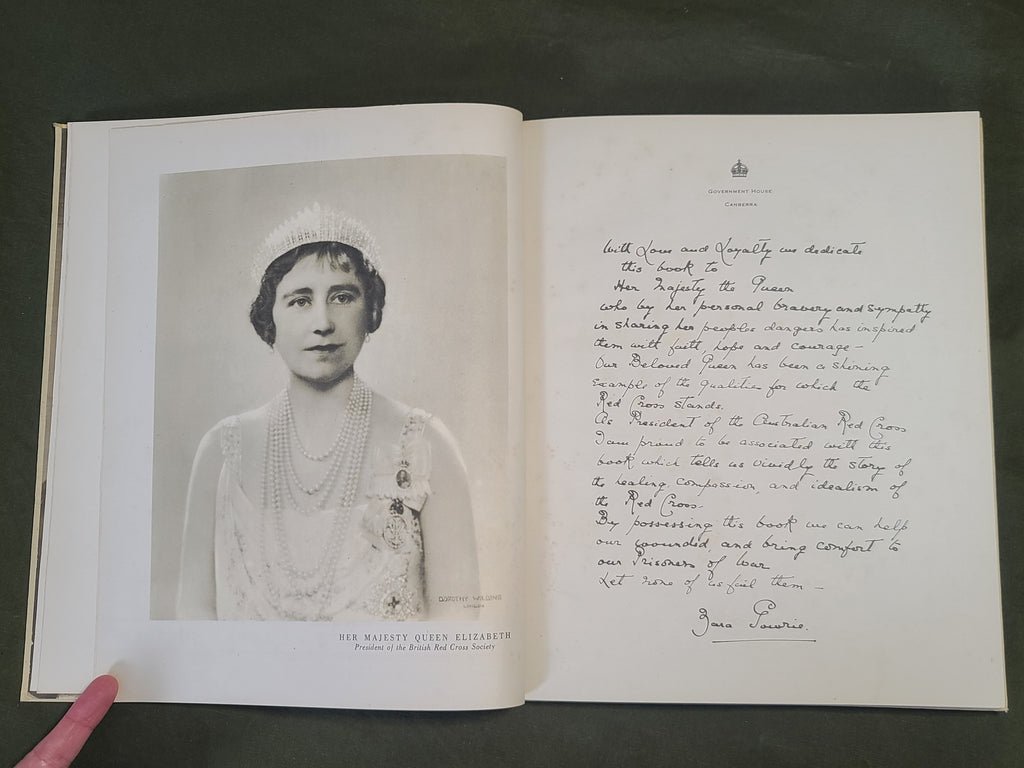 DOROTHY WILDING
LONDON
HER MAJESTY QUEEN ELIZABETH
President of the British Red Cross Society
GOVERNMENT HOUSE
CANBERRA
With Love and Loyalty we dedicate
this book to
Her Majesty the Queen
who by her personal bravery and sympathy
in sharing her peoples dangers has inspired
them with faith, hope and courage –
Our Beloved Queen has been a shining
example of the qualities for which the
Red Cross stands.
As President of the Australian Red Cross
I am proud to be associated with this
book which tells us vividly the story of
the healing, compassion, and idealism of
the Red Cross.
By possessing this book we can help
our wounded, and bring comfort to
our Prisoners of War
Let none of us fail them –
Zara Gowrie.